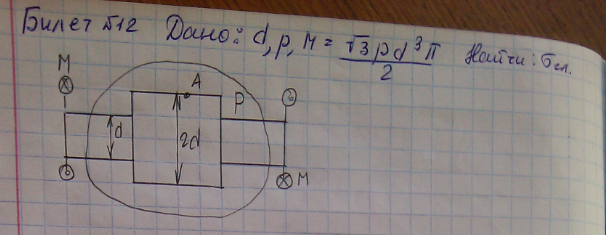 Билет №12 Дано: d, p, M = √3 p d³ π / 2 Найти: бэкв.
M
A
P
d
2d
M